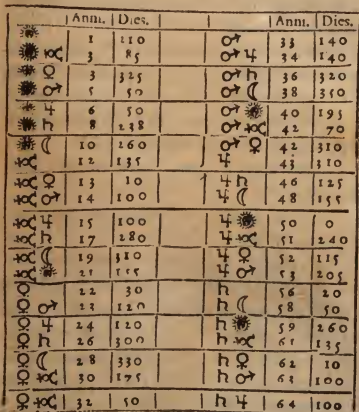 Anni. | Dies. | Anni. | Dies.
☉ | 1 | 110 | ♂ | 33 | 140
☉ ☿ | 3 | 85 | ♂ ♃ | 34 | 140
☉ ♀ | 3 | 325 | ♂ ♄ | 36 | 320
☉ ♂ | 5 | 50 | ♂ ☾ | 38 | 350
☉ ♃ | 6 | 50 | ♂ ☉ | 40 | 195
☉ ♄ | 8 | 238 | ♂ ☿ | 42 | 70
☉ ☾ | 10 | 260 | ♂ ♀ | 42 | 310
☿ | 12 | 135 | ♃ | 43 | 310
☿ ♀ | 13 | 10 | ♃ ♄ | 46 | 125
☿ ♂ | 14 | 100 | ♃ ☾ | 48 | 155
☿ ♃ | 15 | 100 | ♃ ☉ | 50 | 0
☿ ♄ | 17 | 280 | ♃ ☿ | 51 | 240
☿ ☾ | 19 | 310 | ♃ ♀ | 52 | 115
☿ ☉ | 21 | 155 | ♃ ♂ | 53 | 205
♀ | 22 | 30 | ♄ | 56 | 20
♀ ♂ | 23 | 120 | ♄ ☾ | 58 | 50
♀ ♃ | 24 | 120 | ♄ ☉ | 59 | 260
♀ ♄ | 26 | 300 | ♄ ☿ | 61 | 135
♀ ☾ | 28 | 330 | ♄ ♀ | 62 | 10
♀ ☉ | 30 | 175 | ♄ ♂ | 63 | 100
♀ ☿ | 32 | 50 | ♄ ♃ | 64 | 100